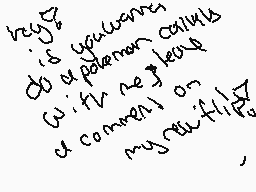 hey!
is you wanna
do a pokemon collab
with me, leave
a comment on
my new flip.